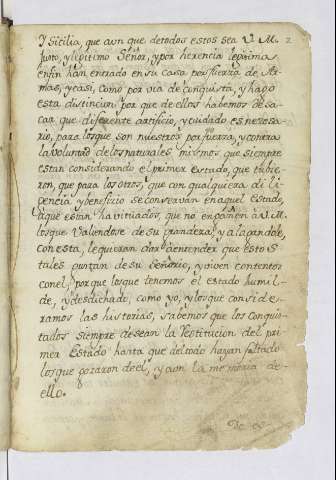 Y Sicilia, que aun que de todos estos sea V. M. 2
Justo, y lexitimo Señor, y por herencia lexitima
enfin han entrado en su casa por fuerza de Ar-
mas, y casi, como por via de conquista, y hago
esta distincion por que de ellos habemos de sa-
car que diferente artificio, y cuidado es necesa-
rio, para los que son nuestros por fuerza, y contra
la voluntad de los naturales mismos que siempre
estan considerando el primer estado, que tubie-
ron, que para los otros, que con qualquiera dili-
gencia y beneficio se conservan en aquel estado,
a que estan habituados, que no engañen a V. M.
los que Valiendose de su grandeza, y alagandole,
con esta, le quieran dar a entender que estos
tales gustan de su Señorio, y viven contentos
con el, porque los que tenemos el estado humil-
de, y desdichado, como yo, y los que conside-
ramos las historias, sabemos que los conquis-
tados siempre desean la Restitucion del pri-
mer Estado hasta que del todo hayan faltado
los que gozaron de el, y aun la memoria de-
ello.